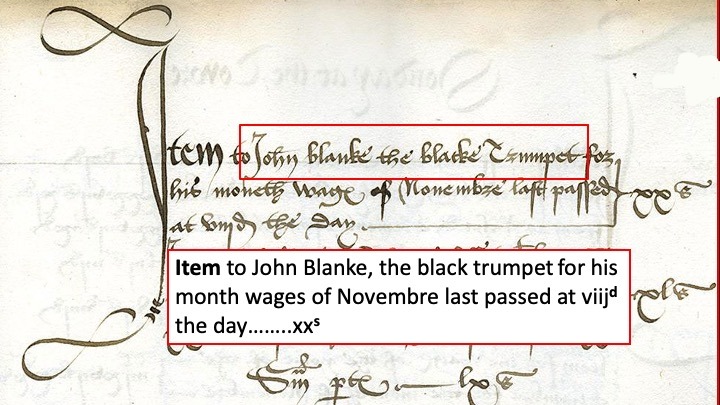 Item to John blanke the blacke Trumpet for
his moneth wage of Novembre last passed xx s
at viijd the day
Item to John Blanke, the black trumpet for his
month wages of Novembre last passed at viijᵈ
the day……..xxˢ
xl s
lx s